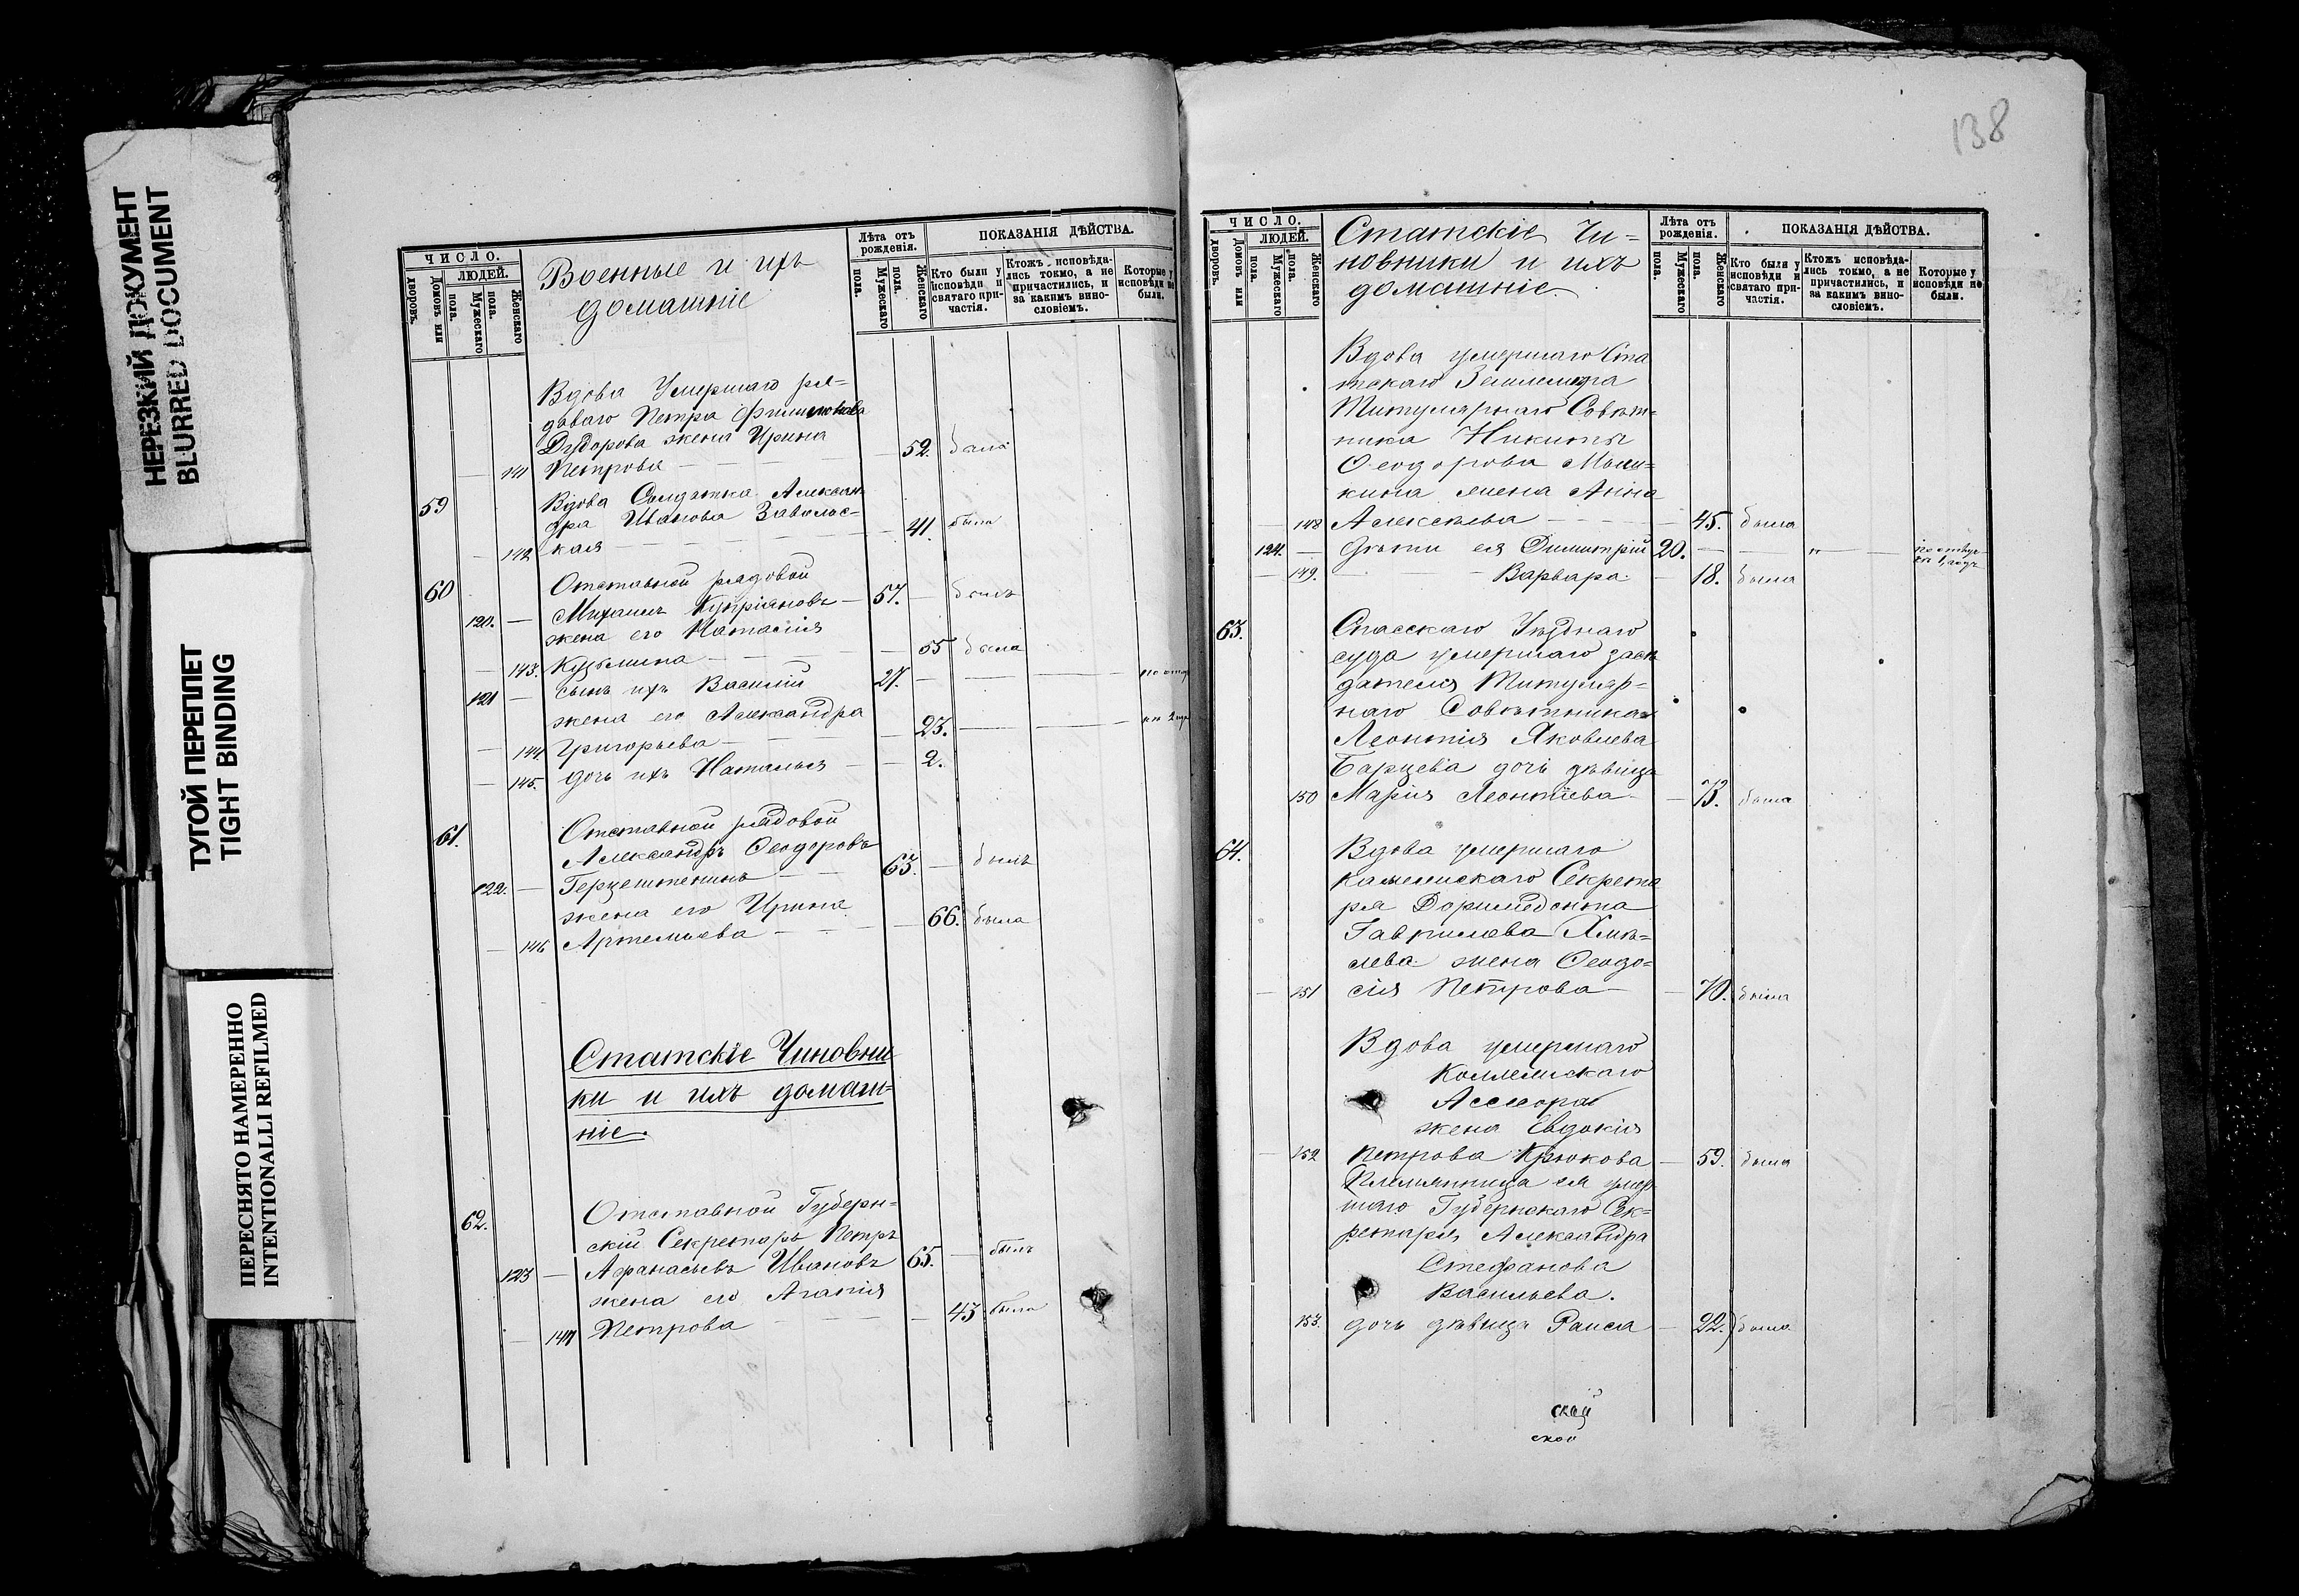 НЕРЕЗКИЙ ДОКУМЕНТ
BLURRED DOCUMENT
ТУГОЙ ПЕРЕПЛЕТ
TIGHT BINDING
ПЕРЕСНЯТО НАМЕРЕННО
INTENTIONALLI REFILMED
ЧИСЛО.
ЛЮДЕЙ.
Домовъ или дворовъ.
Мужескаго пола.
Женскаго пола.
Военные и ихъ
домашніе
Лѣта отъ рожденія.
Мужескаго пола.
Женскаго пола.
ПОКАЗАНІЯ ДѢЙСТВА.
Кто были у исповѣди и святаго причастія.
Ктожъ исповѣдались токмо, а не причастились, и за какимъ винословіемъ.
Которые у исповѣди не были.
Вдова Умершаго ря-
доваго Петра
жена Ирина
141 Петрова — 52. была
59 Вдова Солдатка Александ
ра Иванова Заволос-
142 кая — 41. была
60 Отставной рядовой
120. — Михаилъ Купріановъ — 57. — былъ
жена его Наталія
143. Кузьмина — 55 была
121 — сынъ ихъ Василій 27.
жена его Александра
144 Григорьева — 23.
145. дочь ихъ Наталья — 2.
61. Отставной рядовой
Александръ Ѳеодоровъ
122. — 63. — былъ
жена его Ирина
146 Артемьева — 66. была
Статскіе Чиновни
ки и ихъ домаш-
ніе.
62. Отставной Губерн-
скій Секретарь Петръ
123 — Афанасьевъ Ивановъ 65. — былъ
жена его Агапія
147 Петрова — 43. была
138
ЧИСЛО.
ЛЮДЕЙ.
Домовъ или дворовъ.
Мужескаго пола.
Женскаго пола.
Статскіе Чи-
новники и ихъ
домашніе.
Лѣта отъ рожденія.
Мужескаго пола.
Женскаго пола.
ПОКАЗАНІЯ ДѢЙСТВА.
Кто были у исповѣди и святаго причастія.
Ктожъ исповѣдались токмо, а не причастились, и за какимъ винословіемъ.
Которые у исповѣди не были.
Вдова умершаго Ста
тскаго Землемѣра
Титулярнаго Совѣт-
ника Никиты
Ѳеодорова
кина жена Анна
148 Алексѣева — 45. была
124. — дѣти ея Димитрій 20.
149. Варвара. — 18. была
63. Спасскаго Уѣзднаго
суда умершаго засѣ
дателя Титуляр-
наго Совѣтника
Леонтія Яковлева
Барцева дочь дѣвица
150 Марія Леонтіева — 73. была
64. Вдова умершаго
Секрета
ря Доримедонта
Гаврилова Хмѣ-
лева жена Ѳеодо-
151 сія Петрова — 70. была
Вдова умершаго
Коллежскаго
Ассесора
жена Евдокія
152 Петрова Крюкова — 59. была
Племянница ея умер
шаго Губернскаго Сек-
ретаря Александра
Стефанова
Васильева.
153. дочь дѣвица Раиса — 22. была
ской